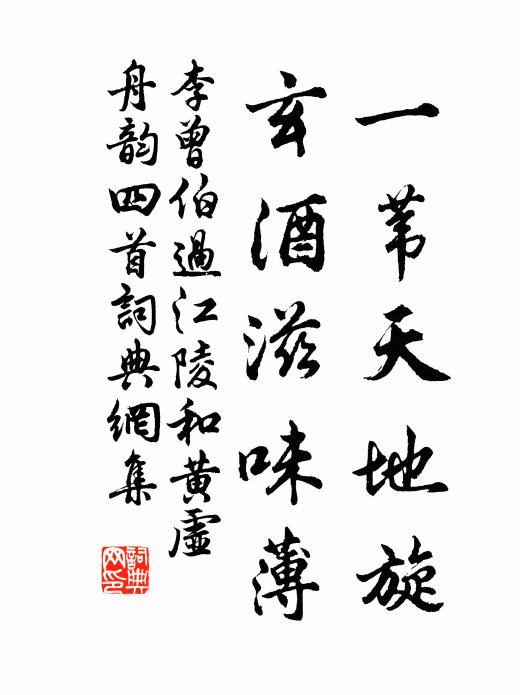 一苇天地旋
玄酒滋味薄
李曾伯過江陵和黃虛
舟韵四首詞典網集
詞典网印